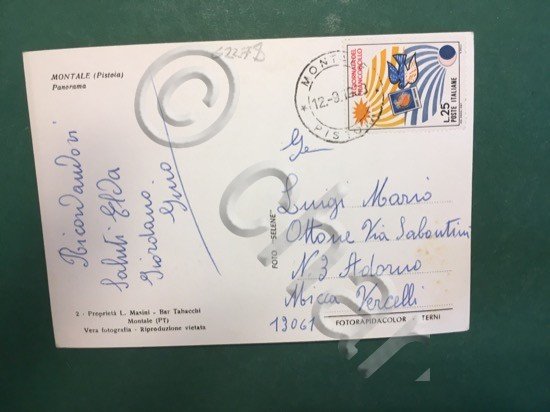 MONTALE (Pistoia)
Panorama
Ricordandovi
Saluti Elda
Giordano
Gino
2 - Proprietà L. Masini - Bar Tabacchi
Montale (PT)
Vera fotografia - Riproduzione vietata
FOTO "SELENE"
12.-3.
PIS
L.25
POSTE ITALIANE
Luigi Mario
Ottone Via Sabontini
N. 3 Adorno
Micca Vercelli
13061
FOTORAPIDACOLOR - TERNI
©